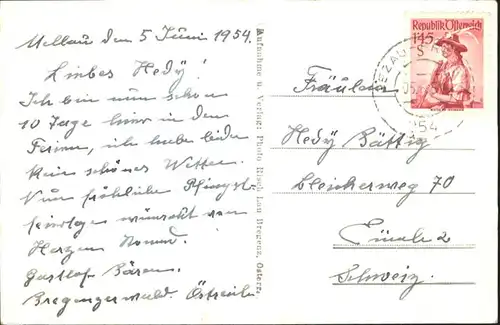 Mellau den 5 Juni 1954.
Liebes Hedy!
Ich bin nun schon
10 Tage hier in den
Ferien, ich habe leider
kein schönes Wetter.
Nun fröhliche Pfingst-
feiertage wünscht von
Herzen
Gasthof Bären.
Bregenzerwald. Östreich
Aufnahme u. Verlag: Photo Risch-Lau Bregenz, Österr.
Republik Österreich
1.45
BEZAU
1954
Fräulein
Hedy Bättig
Bleicherweg 70
2
Schweiz.